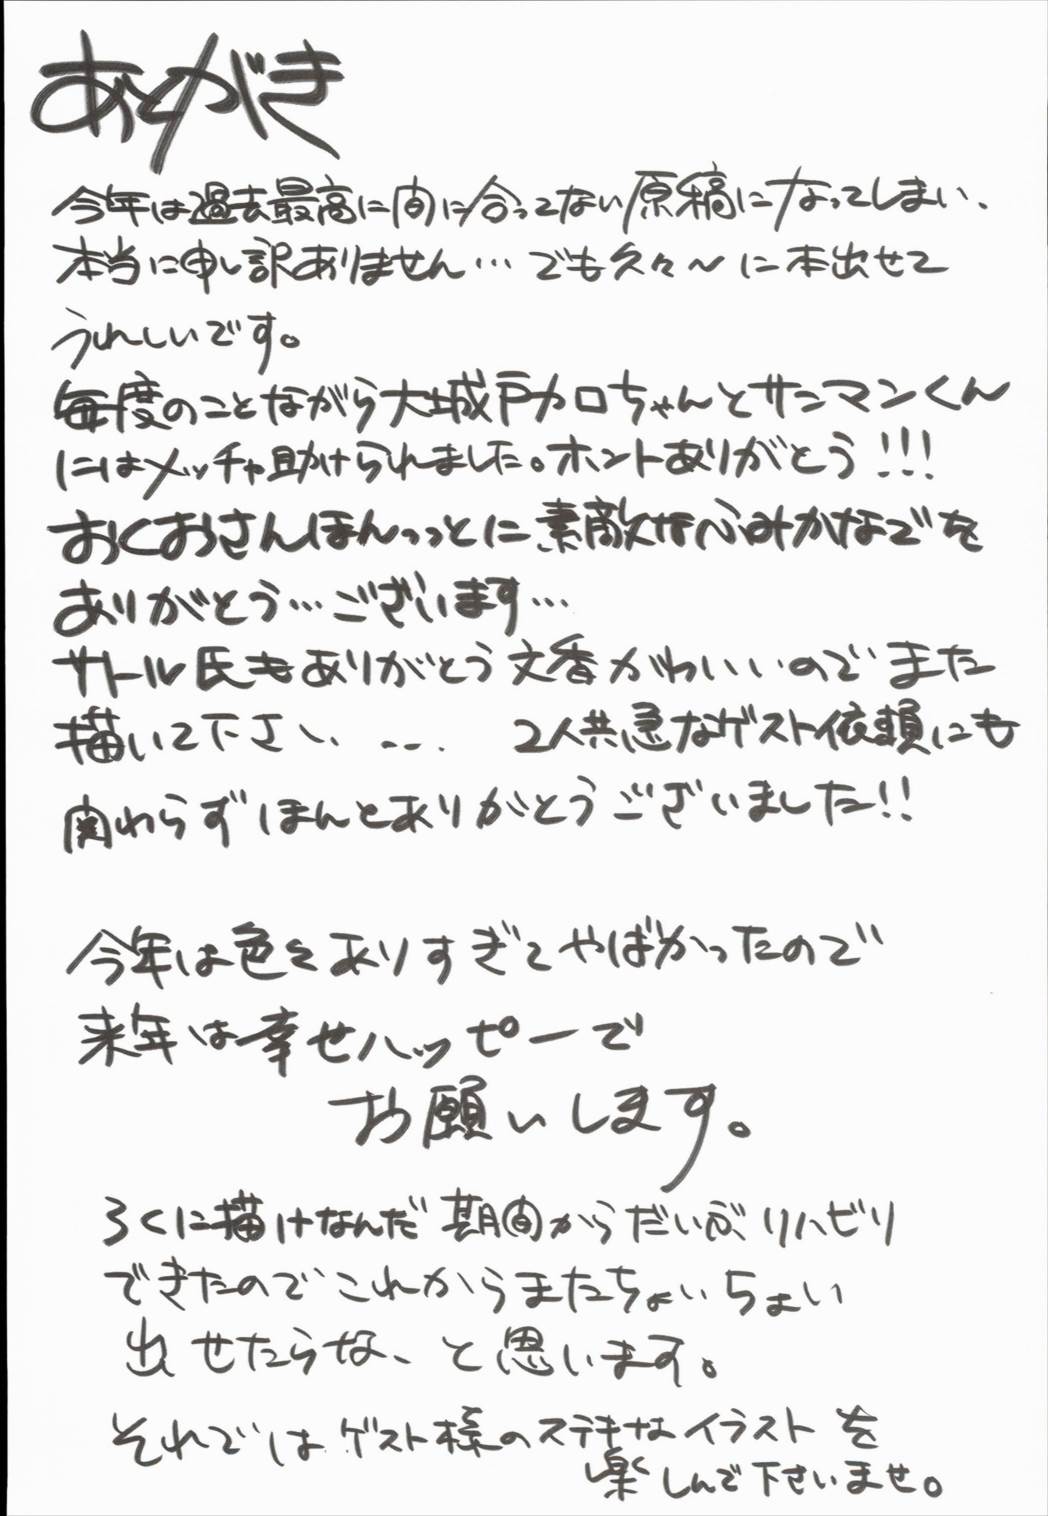 あとがき
今年は過去最高に間に合ってない原稿になってしまい、
本当に申し訳ありません…でも久々〜に本出せて
うれしいです。
毎度のことながら大城戸カロちゃんとサンマンくん
にはメッチャ助けられました。ホントありがとう!!!
おくおさんほんっっとに素敵なふみかなでを
ありがとう…ございます…
サトル氏もありがとう文香かわいいのでまた
描いて下さい、... 2人共急なゲスト依頼にも
関わらずほんとありがとうございました!!
今年は色々ありすぎてやばかったので
来年は幸せハッピーで
お願いします。
ろくに描けなんだ期間からだいぶリハビリ
できたのでこれからまたちょいちょい
出せたらな、と思います。
それではゲスト様のステキなイラストを
楽しんで下さいませ。